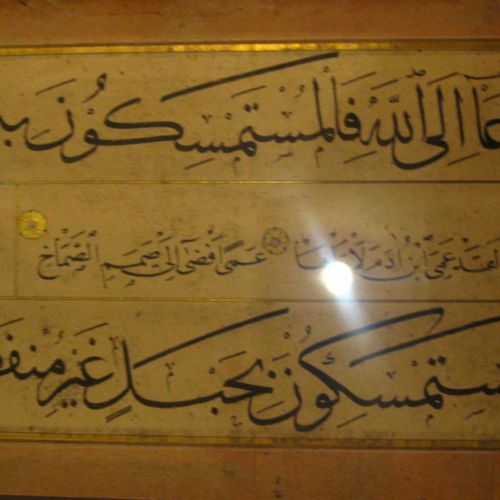 عَآ اِلَى اللّٰهِ فَالْمُسْتَمْسِكُونَ بِ
لقَدْ عَمِىَ ابْنُ اٰدَمَ لَا عَمًى اَفْضٰى اِلٰى صَمَمِ الصِّمَاخِ
سْتَمْسِكُونَ بِحَبْلٍ غَيْرِ مُنْفَ